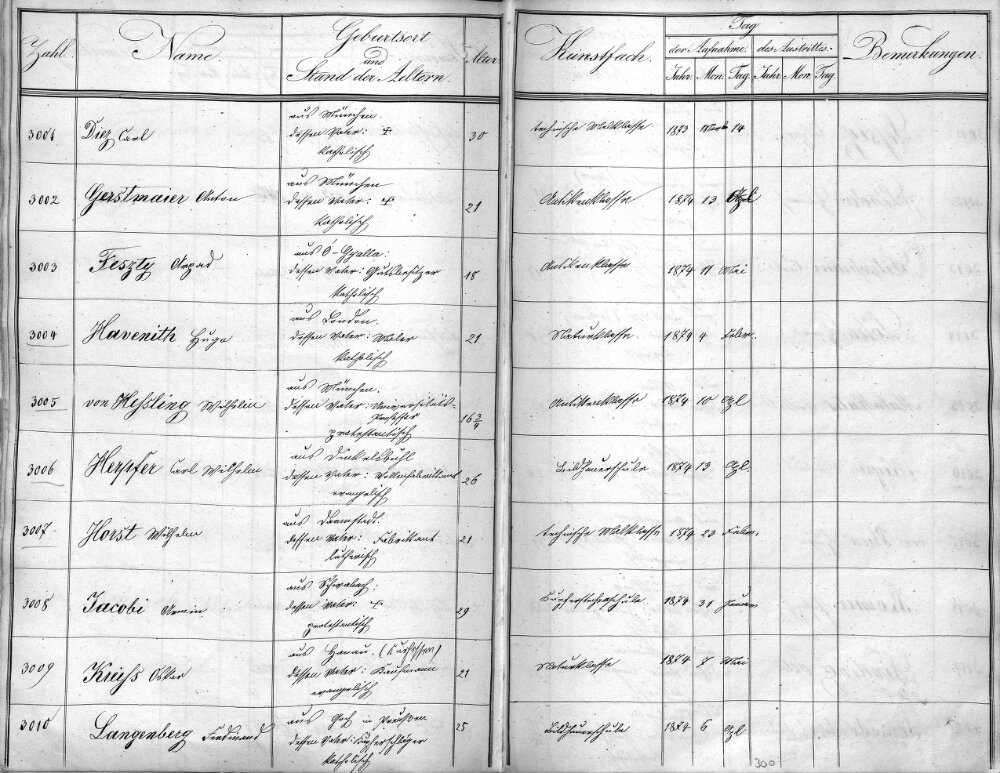 Zahl. Name. Geburtsort und Stand der Aeltern. Alter Kunstfach. Tag der Aufnahme. des Austrittes. Bemerkungen.
Jahr. Mon. Tag. Jahr. Mon. Tag.
3001 Diez Carl
aus München
dessen Vater: +
katholisch
30 technische Malklasse 1873 14
3002 Gerstmaier Anton
aus München
dessen Vater: +
katholisch
21 Antikenklasse 1874 13 Apl
3003 Feszty Arpad
aus Ó-Gyalla:
dessen Vater: Gutsbesitzer
katholisch
18 Antikenklasse 1874 11 Mai
3004 Havenith Hugo
aus London.
dessen Vater: Maler
katholisch
21 Naturklasse. 1874 4 Febr.
3005 von Hessling Wilhelm
aus München.
dessen Vater: Universitäts-
Professor
protestantisch
16 3/4 Antikenklasse 1874 10 Apl
3006 Herpfer Carl Wilhelm
aus Dinkelsbühl
dessen Vater:
evangelisch
26 Bildhauerschule 1874 13 Apl.
3007. Horst Wilhelm
aus Darmstadt.
dessen Vater: Fabrikant
lutherisch
21 technische Malklasse 1874 23 Febr.
3008 Jacobi Armin
aus Schwabach:
dessen Vater: +
protestantisch
29 Kupferstecherschule 1874 31 Januar
3009 Kreiss Oskar
aus Hanau. (Kurhessen)
dessen Vater: Kaufmann
evangelisch
21 Naturklasse 1874 7 Mai
3010 Langenberg Ferdinand
aus Goch in Preußen
dessen Vater: Kupferschläger
katholisch
25 Bildhauerschule 1874 6 Apl
300